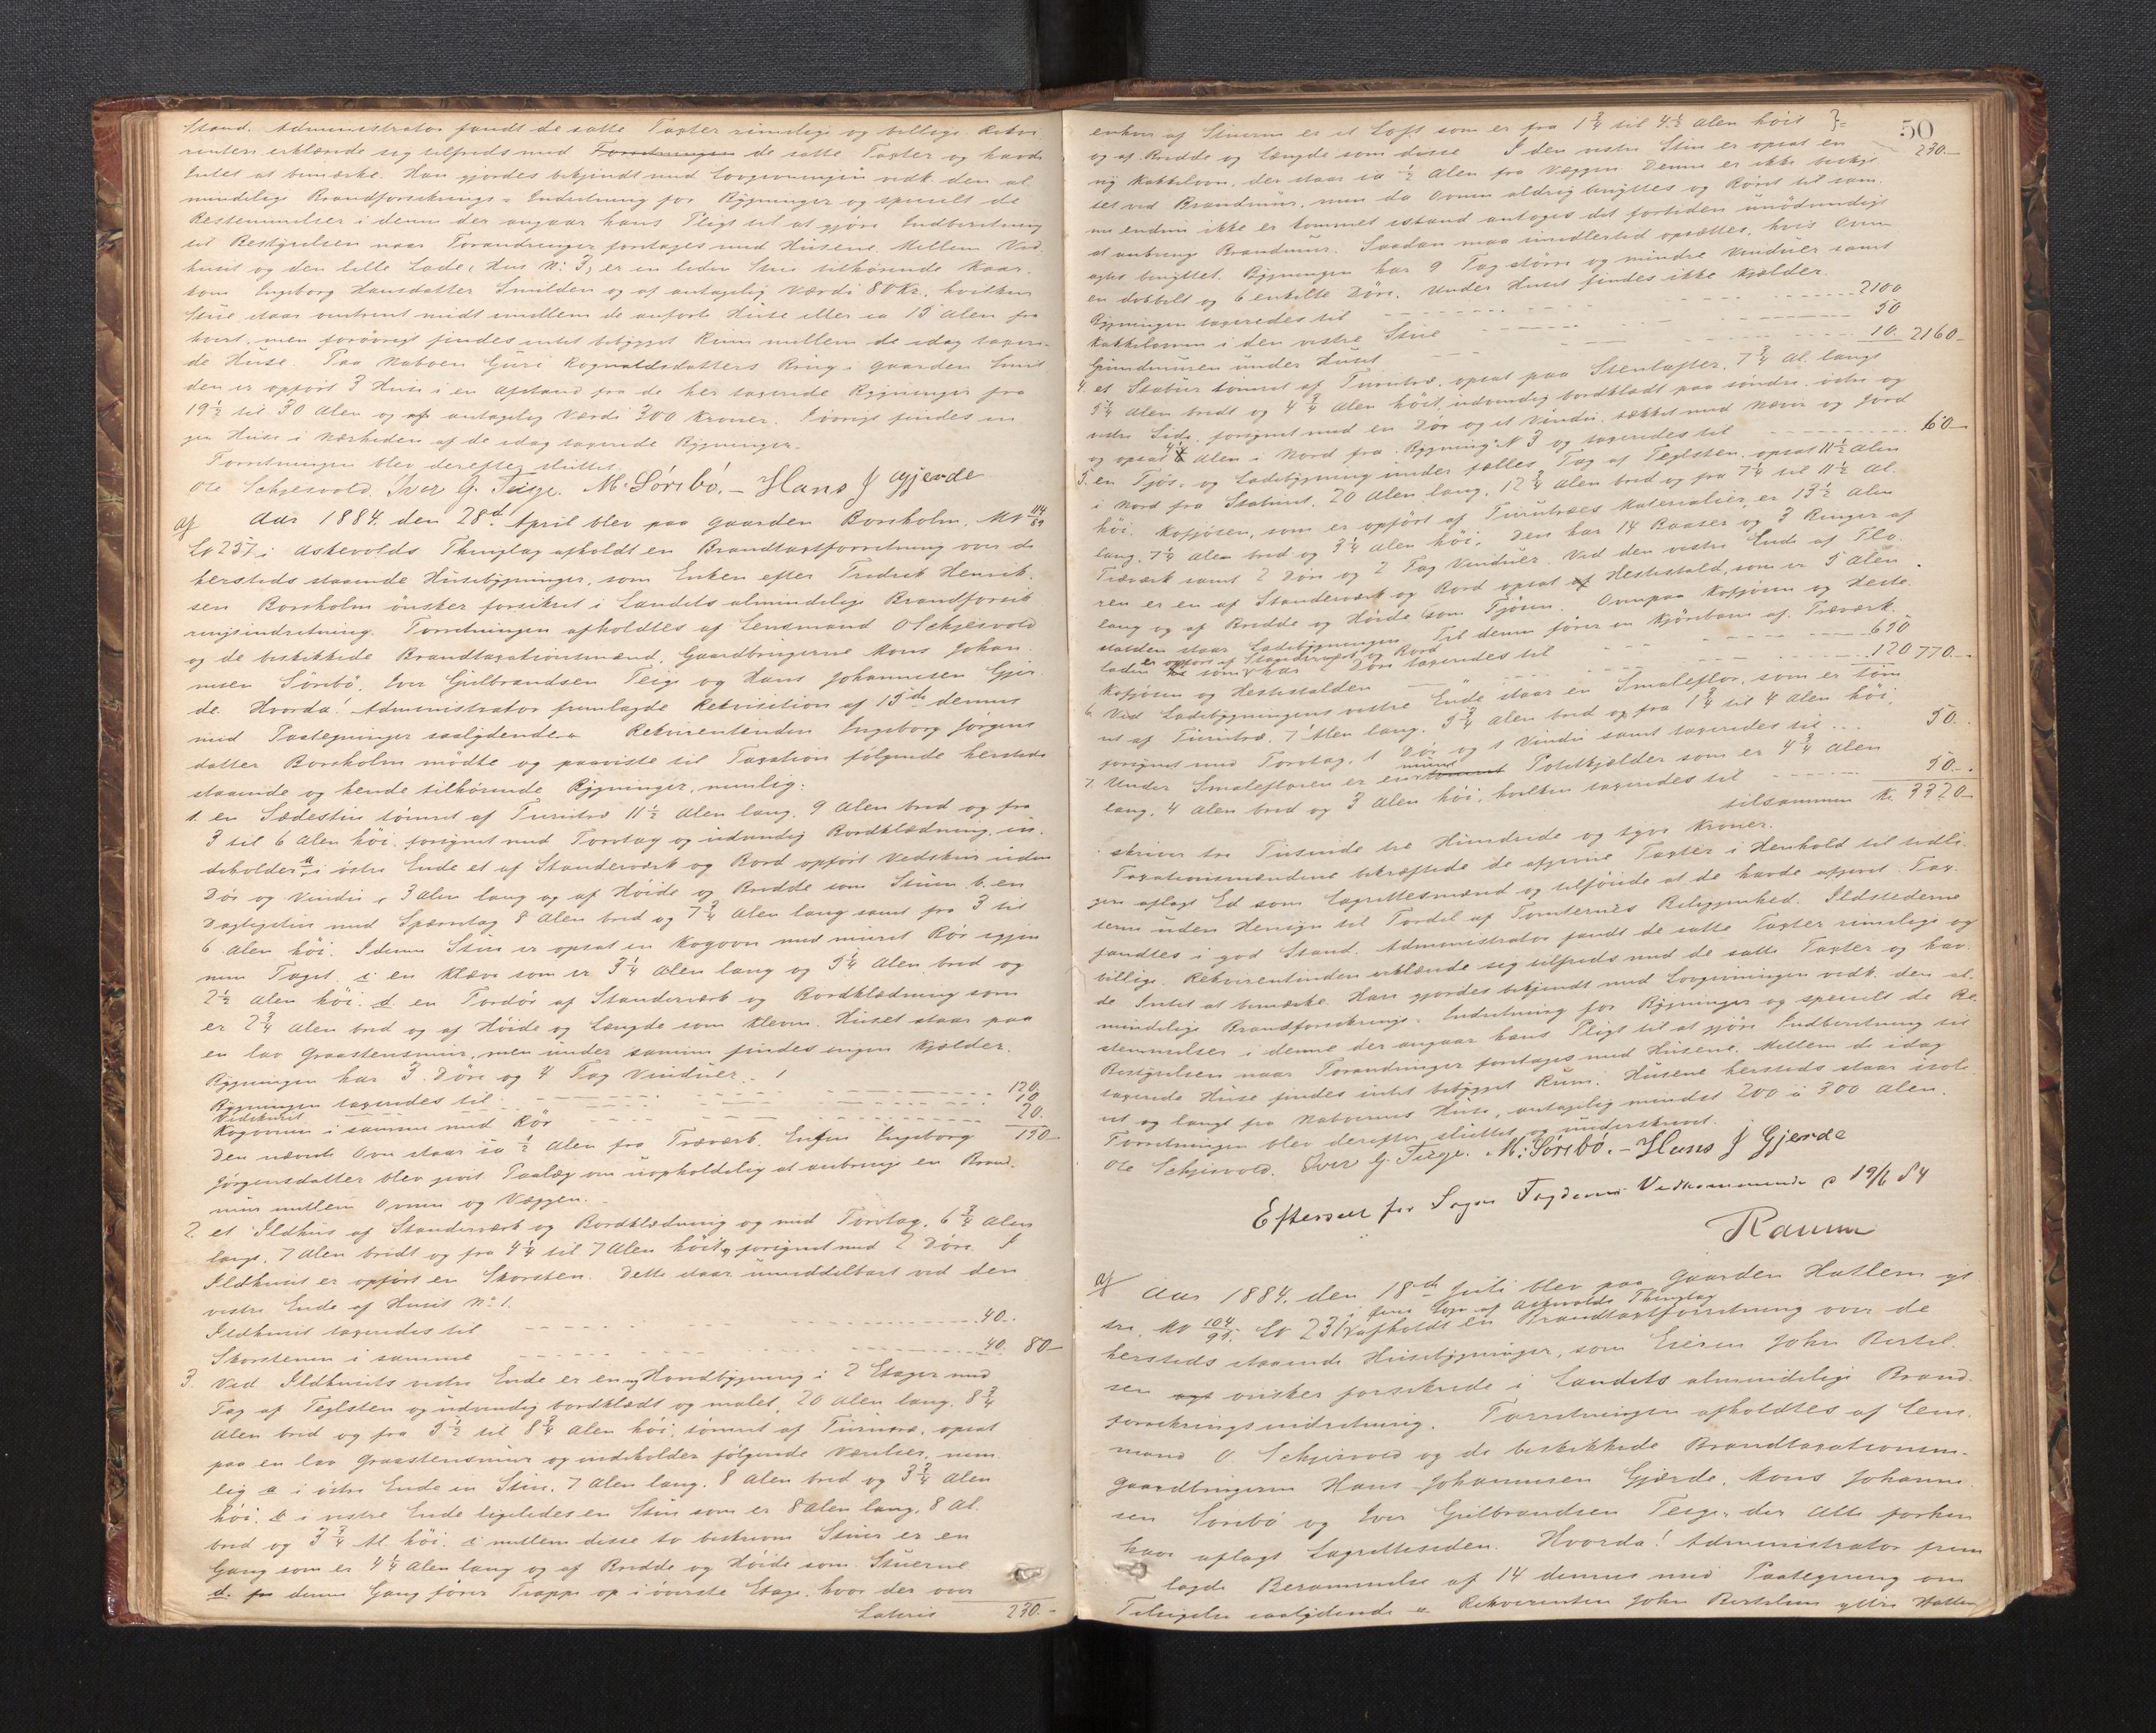 Stand. Administrator fandt de satte Taxter rimelige og billige. Rekvi
renten erklærede sig tilfreds med Forretningen de satte Taxter og havde
Intet at bemærke. Han gjordes bekjendt med Lovgivningen vedk. den al
mindelige Brandforsikrings-Indretning for Bygninger og specielt de
Bestemmelser i denne der angaar hans Pligt til at gjøre Indberetning
til Bestyrelsen naar Forandringer foretages med Husene. Mellem Ved
huset og den lille Lade, Hus N: 3, er en liden Stue tilhørende Kaar-
kone Ingeborg Hansdatter Smilden og af antagelig Værdi 80 Kr. hvilken
Stue staar omtrent midt imellem de anførte Huse eller ca 15 Alen fra
hvert, men forøvrigt findes intet bebygget Rum mellem de idag taxere-
de Huse. Paa Naboen Guri Rognvaldsdatters Brug i Gaarden Smil
den er opført 3 Huse i en Afstand fra de her taxerede Bygninger fra
19½ til 30 Alen og af antagelig Værdi 300 Kroner. Iøvrigt findes in
gen Huse i Nærheden af de idag taxerede Bygninger.
Forretningen blev derefter sluttet.
Ole Schjesvold. Iver G. Teige. M. Sörebö. - Hans J Gjerde
af Aar 1884, den 28d April blev paa Gaarden Borsholm, MN 114/89
Lv 257 i Askevolds Thinglag afholdt en Brandtaxtforretning over de
hersteds staaende Husebygninger, som Enken efter Fredrik Henrik-
sen Borsholm ønsker forsikret i Landets almindelige Brandforsik
ringsindretning. Forretningen afholdtes af Lensmand O Schjesvold
og de beskikkede Brandtaxationsmænd, Gaardbrugerne Mons Johan
nesen Sörebö, Iver Gulbrandsen Teige og Hans Johannesen Gjer
de. Hvorda! Administrator fremlagde Rekvisition af 15de dennes
med Paategninger saalydende Rekvirentinden Ingeborg Jørgens
datter Borsholm mødte og paaviste til Taxation følgende hersteds
staaende og hende tilhørende Bygninger, nemlig:
1. en Sædestue tømret af Furutræ 11½ Alen lang, 9 Alen bred og fra
3 til 6 Alen høi, forsynet med Torvtag og udvendig Bordklædning, in-
deholder a i østre Ende et af Standerværk og Bord opført Vedskur uden
Dør og Vindu, 3 Alen lang og af Høide og Bredde som Stuen b. en
Dagligstue med Spærretag 8 Alen bred og 7¾ Alen lang samt fra 3 til
6 Alen høi. I denne Stue er opsat en Kogeovn med muret Rør igjen
nem Taget. c en Kleve som er 3¼ Alen lang og 5¼ Alen bred og
2½ Alen høi. d. en Fordør af Standerværk og Bordklædning som
er 2¾ Alen bred og af Høide og Længde som Kleven. Huset staar paa
en lav Graastensmur, men under samme findes ingen Kjælder.
Bygningen har 3 Døre og 4 Fag Vinduer.
Bygningen taxeredes til 120.
Vedskuret 10.
Kogeovnen i samme med Rør 20.
Den nævnte Ovn staar ca ½ Alen fra Træværk. Enken Ingeborg 150-
Jørgensdatter blev givet Paalæg om uopholdelig at anbringe en Brand-
mur mellem Ovnen og Væggen.
2. et Ildhus af Standerværk og Bordklædning og med Torvtag, 6¾ Alen
langt, 7 Alen bredt og fra 4¼ til 7 Alen høit, forsynet med 2 Døre. I
Ildhuset er opført en Skorsten. Dette staar umiddelbart ved den
vestre Ende af Huset N: 1.
Ildhuset taxeredes til 40.
Skorstenen i samme 40. 80-
3. Ved Ildhusets vestre Ende er en ny Hovedbygning i 2 Etager med
Tag af Teglsten og udvendig bordklædt og malet, 20 Alen lang, 8¾
Alen bred og fra 5½ til 8¾ Alen høi, tømret af Furutræ, opsat
paa en lav Graastensmur og indeholder følgende Værelser, nem-
lig a i østre Ende en Stue, 7 Alen lang, 8 Alen bred og 3¾ Alen
høi. b i vestre Ende ligeledes en Stue som er 8 Alen lang, 8 Al.
bred og 3¾ Al. høi. c mellem disse to beskrevne Stuer er en
Gang som er 4¼ Alen lang og af Bredde og Høide som Stuerne
d. fra denne Gang fører Trappe op i øverste Etage, hvor der over
Lateris 230.-
50
enhver af Stuerne er et Loft som er fra 1¾ til 4½ Alen høit
og af Bredde og Længde som disse. I den vestre Stue er opsat en 230.-
ny Kakkelovn, der staar ca ½ Alen fra Væggen. Denne er ikke beskyt
tet ved Brandmur, men da Ovnen aldrig benyttes og Røret til sam-
me endnu ikke er kommet istand antoges det fortiden unødvendigt
at anbringe Brandmur. Saadan maa imidlertid opsættes, hvis Ovnen
agtes benyttet. Bygningen har 9 Fag større og mindre Vinduer samt
en dobbelt og 6 enkelte Døre. Under Huset findes ikke Kjælder.
Bygningen taxeredes til 2100
Kakkelovnen i den vestre Stue 50
Grundmuren under Huset 10. 2160-
4. et Stabur tømret af Furutræ, opsat paa Stenstøtter, 7¾ Al. langt
5¼ Alen bredt og 4¾ Alen høit, udvendig bordklædt paa søndre, østre og
vestre Side, forsynet med en Dør og et Vindu, tækket med Næver og Jord
og opsat 4½ Alen i Nord fra Bygning N 3 og taxeredes til 160-
5. en Fjøs- og Ladebygning under fælles Tag af Teglsten, opsat 11½ Alen
i Nord fra Staburet, 20 Alen lang, 12¾ Alen bred og fra 7½ til 11½ Al.
høi. Kofjøsen, som er opført af Furutræes Materialier, er 13½ Alen
lang, 7¼ Alen bred og 3¼ Alen høi. Den har 14 Baaser og 3 Binger af
Træværk samt 2 Døre og 2 Fag Vinduer. Ved den vestre Ende af Flo-
ren er en af Standerværk og Bord opsat Hestestald, som er 5 Alen
lang og af Bredde og Høide som Fjøsen. Ovenpaa Kofjøsen og Heste-
stalden staar Ladebygningen. Til denne fører en Kjørebro af Træværk.
er opført af Standerværk og Bord
Laden som har Døre taxeredes til 650
Kofjøsen og Hestestalden 120 770.-
6. Ved Ladebygningens vestre Ende staar en Smaleflor, som er tøm
ret af Furutræ, 7 Alen lang, 5¾ Alen bred og fra 1¾ til 4 Alen høi,
forsynet med Torvtag, 1 Dør og 1 Vindu samt taxeredes til 50.
7. Under Smalefloren er en muret Potetkjælder som er 4¾ Alen
lang, 4 Alen bred og 3 Alen høi, hvilken taxeredes til 50.-
tilsammen Kr. 3320-
skriver tre Tusinde tre Hundrede og tyve Kroner.
Taxationsmændene bekræftede de afgivne Taxter i Henhold til tidli-
gere aflagt Ed som Lagrettesmænd og tilføiede at de havde afgivet Tax-
terne uden Hensyn til Fordel af Tomternes Beliggenhed. Ildstederne
fandtes i god Stand. Administrator fandt de satte Taxter rimelige og
billige. Rekvirentinden erklærede sig tilfreds med de satte Taxter og hav-
de Intet at bemærke. Han gjordes bekjendt med Lovgivningen vedk. den al-
mindelige Brandforsikrings-Indretning for Bygninger og specielt de Be-
stemmelser i denne der angaar hans Pligt til at gjøre Indberetning til
Bestyrelsen naar Forandringer foretages med Husene. Mellem de idag
taxerede Huse findes intet bebygget Rum. Husene hersteds staar isole-
ret og langt fra Naboernes Huse, antagelig mindst 200 à 300 Alen.
Forretningen blev derefter sluttet og underskrevet.
Ole Schjesvold. Iver G. Teige. M: Sörebö. - Hans J Gjerde
Efterseet for Sogns Fogderies Vedkommende d 19/6 84
Raum
af Aar 1884, den 18de Juli blev paa Gaarden Hatlem yt
i Lyn Sogn af Askvolds Thinglag
tre, MN 104/95, Lv 231 afholdt en Brandtaxtforretning over de
hersteds staaende Husebygninger, som Eieren John Bertel-
sen ønsker forsikrede i Landets almindelige Brand-
forsikringsindretning. Forretningen afholdtes af Lens-
mand O. Schjesvold og de beskikkede Brandtaxationsm-
Gaardbrugerne Hans Johannesen Gjærde, Mons Johanne
sen Sörebö og Iver Gulbrandsen Teige, der alle forhen
have aflagt Lagretteseden. Hvorda! Administrator frem
lagde Berammelse af 14 dennes med Paategning om
Tilsigelse saalydende Rekvirenten John Bertelsen yttre Hatlem